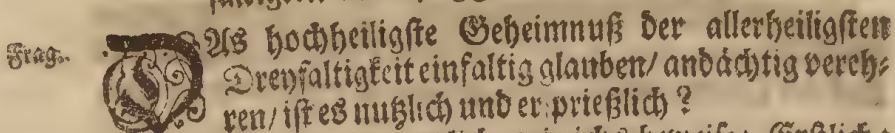 Frag.
DAs hochheiligste Geheimnuß der allerheiligsten
Dreyfaltigkeit einfaltig glauben/ andächtig vereh-
ren/ ist es nutzlich und ersprießlich?